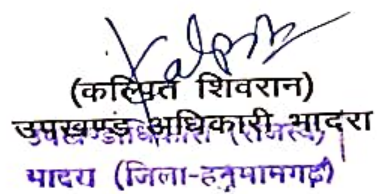 (कल्पित शिवरान)
उपखण्ड अधिकारी भादरा
उपखण्ड अधिकारी (राजस्व)
भादरा (जिला-हनुमानगढ़)